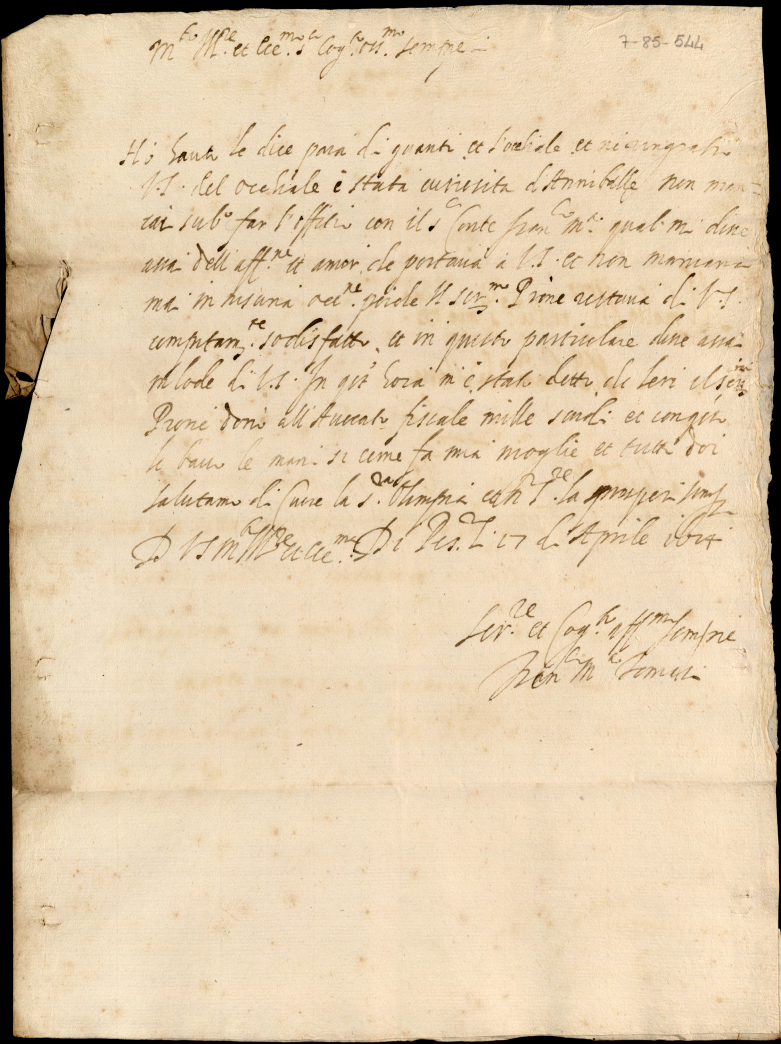 7-85-544
M.to Ill.re et Ecc.mo s.r Cog.to oss.mo sempre
Hò hauto le dice para di guanti et l'ochiale et ne ringratio
V.S. del occhiale è stata curiosita d'Anniballe non man-
cai sub.o far l'offitio con il s.r Conte Fran.co M.a qual mi disse
assai dell'aff.ne et amor che portava à V.S. et non mancara
mai in nisuna occ.ne poiche Il Ser.mo Prone restava di V.S.
computam.te sodisfatto et in questo particulare disse assai
in lode di V.S. In q.to hora m'è stato detto che Ieri il ser.mo
Prone donò all'Avvocato fiscale mille scudi et con q.to
le bacio le mani si come fa mia moglie et tutti doi
salutamo di Cuore la s.ra Olimpia et N.S.re la prosperi semp
D V S M.to Ill.re et Ecc.ma Di Pes.o li 17 d'Aprile 1624
Ser.re et Cog.to aff.mo sempre
Fran.co M.a